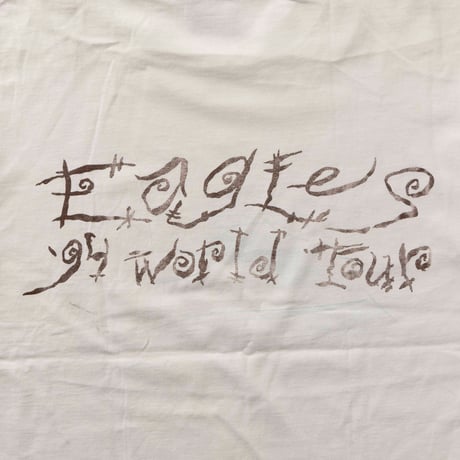 Eagles
'94 world Tour